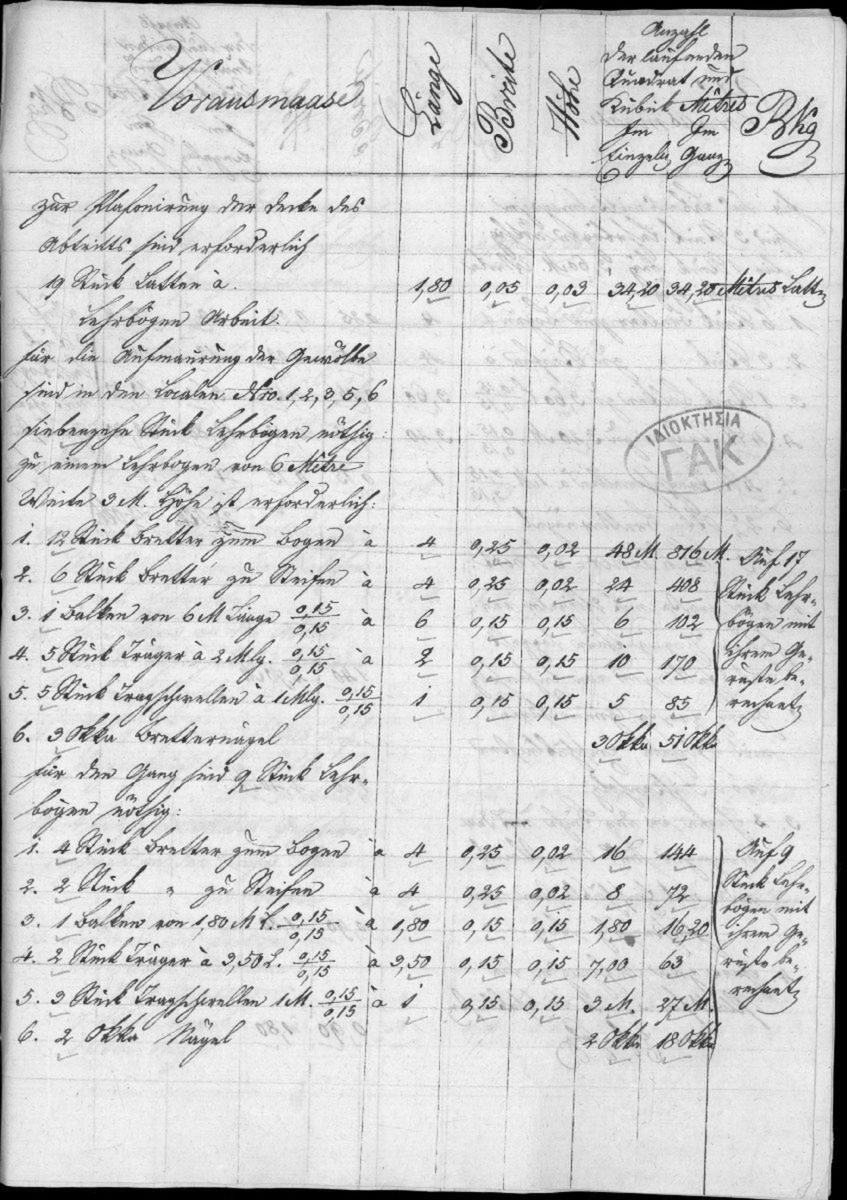 Vorausmaase Länge Breite Höhe Anzahl der laufenden Quadrat und Kubik Mètres Im Einzeln Im Ganz Bkg
zur Plafonirung der Decke des
Abtritts sind erforderlich
19 Stück Latten à. 1,80 0,05 0,03 34,20 34,20 Mètres Latt
Lehrbögen Arbeit.
für die Aufmaurung der Gewölbe
sind in den Localen Nro. 1, 2, 3, 5, 6
siebenzehn Stück Lehrbögen nöthig:
zu einem Lehrbogen von 6 Mètre
Weite 3 M. Höhe ist erforderlich:
ΙΔΙΟΚΤΗΣΙΑ
ΓΑΚ
1. 12 Stück Bretter zum Bogen à 4 0,25 0,02 48 M. 816 M. Auf 17
2. 6 Stück Bretter zu Steifen à 4 0,25 0,02 24 408 Stück Lehr-
3. 1 Balken von 6 M Länge 0,15/0,15 à 6 0,15 0,15 6 102 bögen mit
4. 5 Stück Träger à 2 M lg. 0,15/0,15 à 2 0,15 0,15 10 170 ihrem Ge-
rüste be-
5. 5 Stück Tragschwellen à 1 M lg. 0,15/0,15 1 0,15 0,15 5 85 rechnet
6. 3 Okka Bretternägel 3 Okka 51 Okka
für den Gang sind 9 Stück Lehr-
bögen nöthig:
1. 4 Stück Bretter zum Bogen à 4 0,25 0,02 16 144 Auf 9
2. 2 Stück " zu Steifen à 4 0,25 0,02 8 72 Stück Lehr-
bögen mit
3. 1 Balken von 1,80 M L. 0,15/0,15 à 1,80 0,15 0,15 1,80 16,20 ihrem Ge-
4. 2 Stück Träger à 3,50 L. 0,15/0,15 à 3,50 0,15 0,15 7,00 63 rüste be-
5. 3 Stück Tragschwellen 1 M. 0,15/0,15 à 1 0,15 0,15 3 M. 27 M. rechnet
6. 2 Okka Nägel 2 Okka 18 Okka